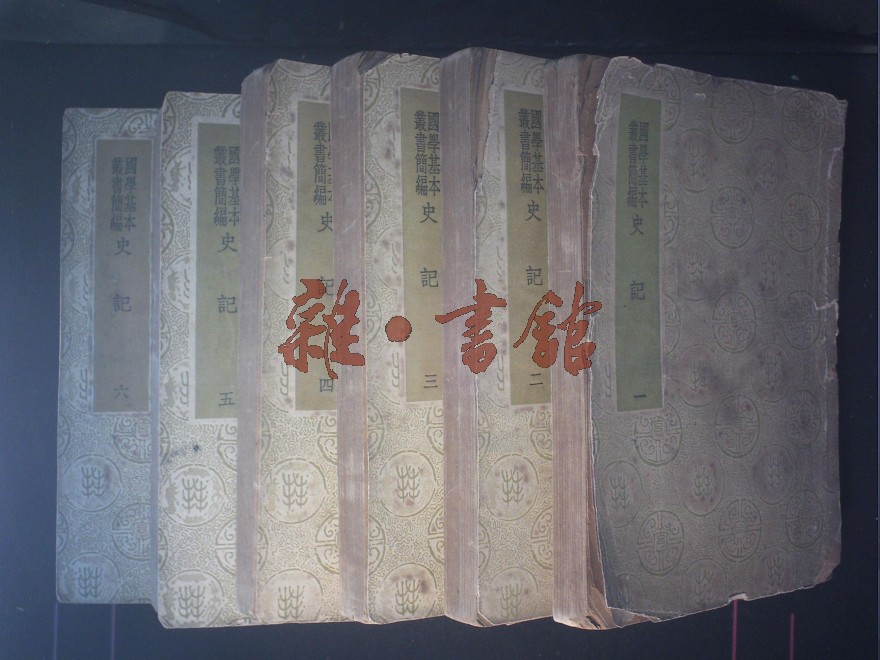 國學基本
叢書簡編
史記
一
國學基本
叢書簡編
史記
二
國學基本
叢書簡編
史記
三
國學基本
叢書簡編
史記
四
國學基本
叢書簡編
史記
五
國學基本
叢書簡編
史記
六
雜·書館